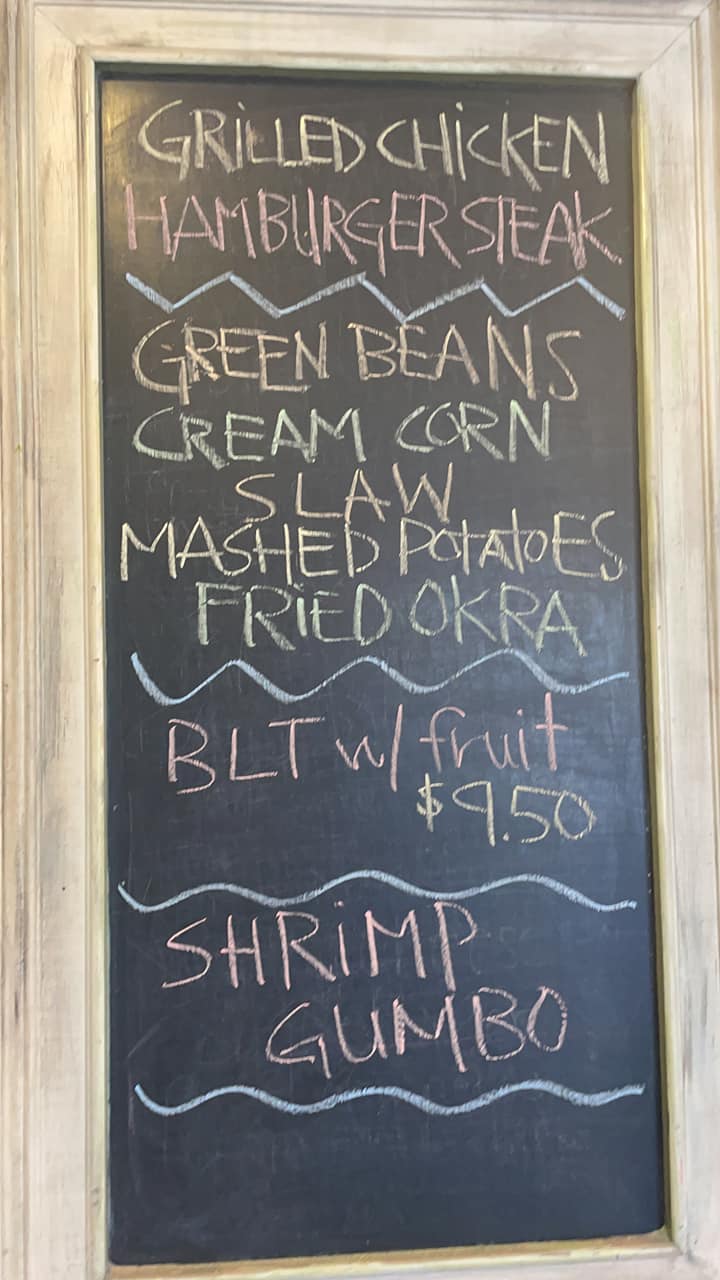 GRiLLED CHiCKEN
HAMBURGER STEAK
GREEN BEANS
CREAM CORN
SLAW
MASHED POtAtoES
FRiED OKRA
BLT w/ fruit
$9.50
SHRiMP
GUMBO